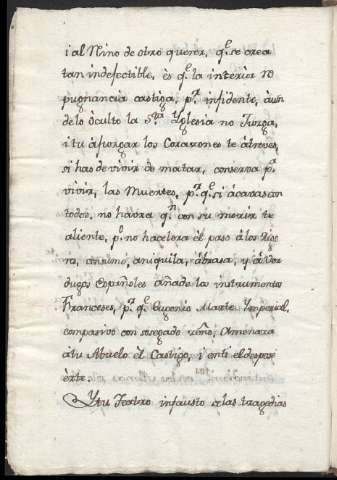 i al Nino de otro querer, q.e se crea
tan indefectible, ès q.e la interior re
pugnancia castiga, p.r infidente, àun
delo òculto la S.ta Yglesia no Juzga,
i tu à juzgar los Corazones te àtreves,
si has de vivir de matar, conserva p.a
vivir, las Muertes, p.r q.e si àcavas con
todos, no havra q.n con su morir te
aliente, p.o no hacelera èl paso à los
animo, àniquila, àbrasa, y à Ver
dugos Españoles añade los instrumentos
Franceses, p.r q.e Eugenio Marte Ymperial,
compasivo con sosegado Amenaza
à tu Abuelo el Castigo, i en ti el
Y tu Teatro infausto à las tragedias